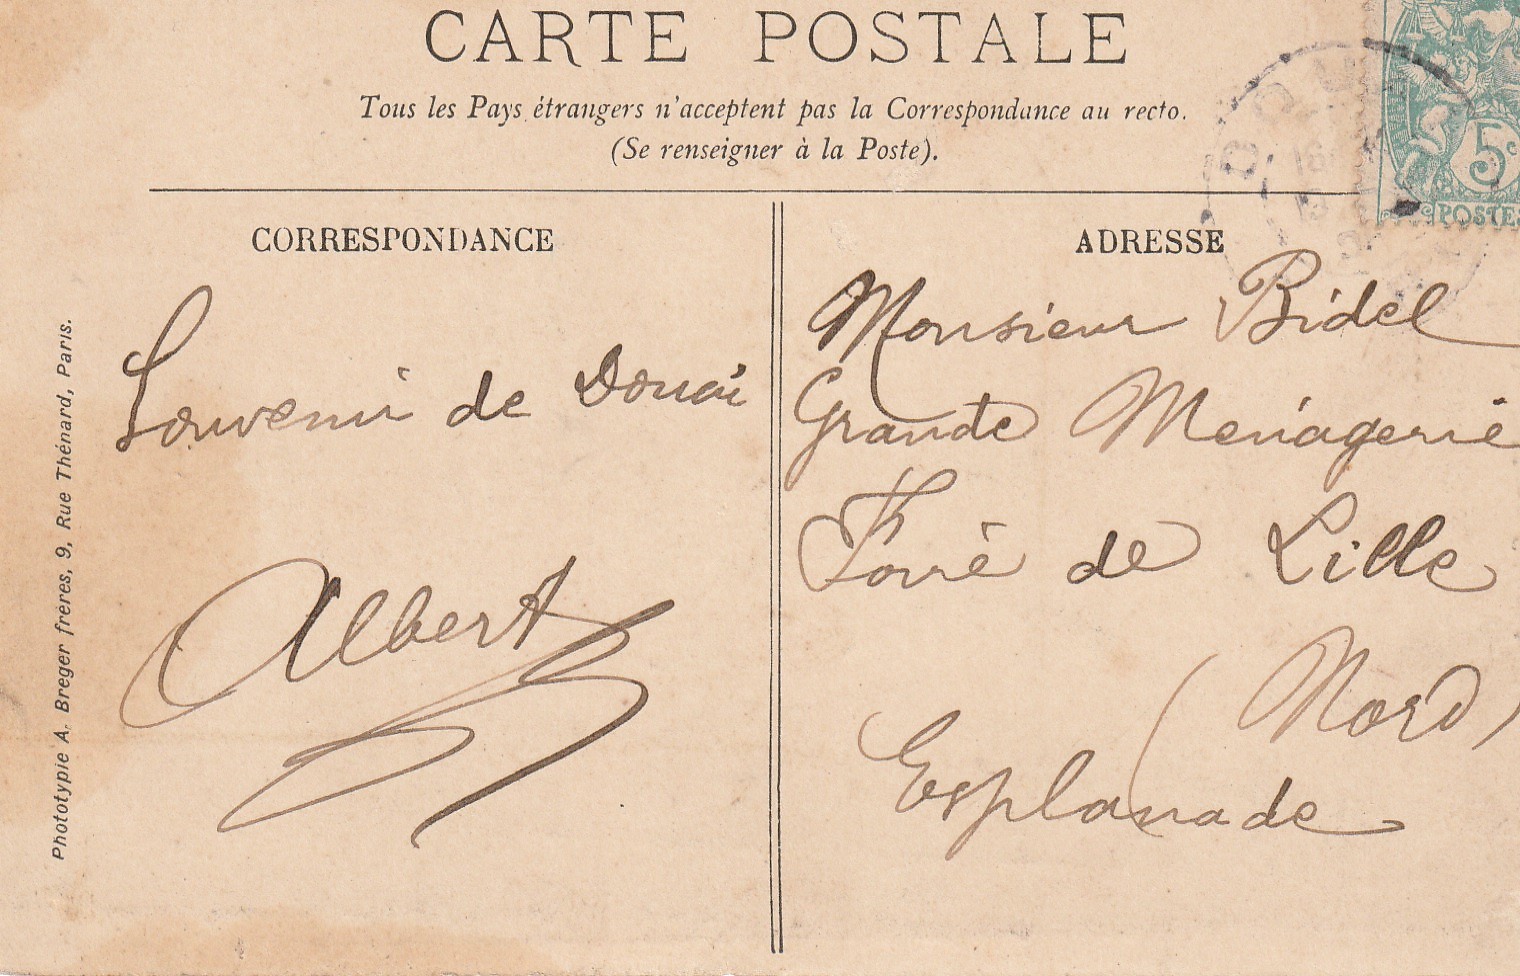 CARTE POSTALE
Tous les Pays étrangers n'acceptent pas la Correspondance au recto.
(Se renseigner à la Poste).
5c
POSTES
CORRESPONDANCE
Souvenir de Douai
Albert
ADRESSE
Monsieur Bidel
Grande Ménagerie
Foire de Lille
(Nord)
Esplanade
Phototypie A. Breger frères, 9, Rue Thénard, Paris.